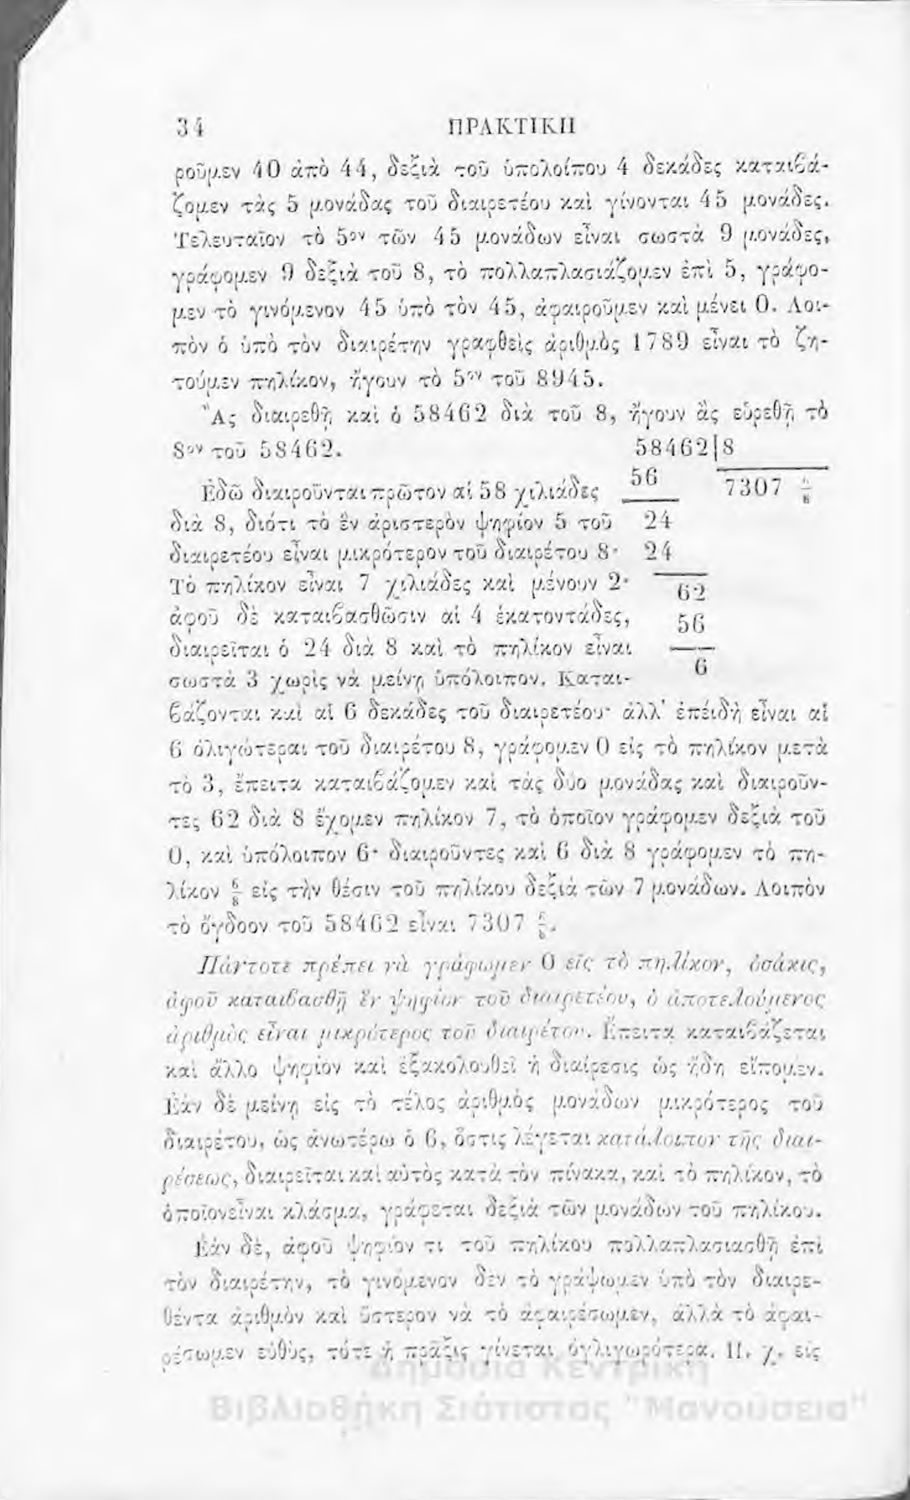 34 ΠΡΑΚΤΙΚΗ
ροῦμεν 40 ἀπὸ 44, δεξιὰ τοῦ ὑπολοίπου 4 δεκάδες καταιβά-
ζομεν τὰς 5 μονάδας τοῦ διαιρετέου καὶ γίνονται 45 μονάδες.
Τελευταῖον τὸ 5ον τῶν 45 μονάδων εἶναι σωστὰ 9 μονάδες,
γράφομεν 9 δεξιὰ τοῦ 8, τὸ πολλαπλασιάζομεν ἐπὶ 5, γράφο-
μεν τὸ γινόμενον 45 ὑπὸ τὸν 45, ἀφαιροῦμεν καὶ μένει 0. Λοι-
πὸν ὁ ὑπὸ τὸν διαιρέτην γραφθεὶς ἀριθμὸς 1789 εἶναι τὸ ζη-
τούμεν πηλίκον, ἤγουν τὸ 5ον τοῦ 8945.
Ἂς διαιρεθῇ καὶ ὁ 58462 διὰ τοῦ 8, ἤγουν ἂς εὑρεθῇ τὸ
8ον τοῦ 58462. 58462|8
Ἐδῶ διαιροῦνται πρῶτον αἱ 58 χιλιάδες 56 7307 6/8
διὰ 8, διότι τὸ ἓν ἀριστερὸν ψηφίον 5 τοῦ 24
διαιρετέου εἶναι μικρότερον τοῦ διαιρέτου 8· 24
Τὸ πηλίκον εἶναι 7 χιλιάδες καὶ μένουν 2· 62
ἀφοῦ δὲ καταιβασθῶσιν αἱ 4 ἑκατοντάδες, 56
διαιρεῖται ὁ 24 διὰ 8 καὶ τὸ πηλίκον εἶναι
σωστὰ 3 χωρὶς νὰ μείνῃ ὑπόλοιπον. Καται- 6
βάζονται καὶ αἱ 6 δεκάδες τοῦ διαιρετέου· ἀλλ' ἐπειδὴ εἶναι αἱ
6 ὀλιγώτεραι τοῦ διαιρέτου 8, γράφομεν 0 εἰς τὸ πηλίκον μετὰ
τὸ 3, ἔπειτα καταιβάζομεν καὶ τὰς δύο μονάδας καὶ διαιροῦν-
τες 62 διὰ 8 ἔχομεν πηλίκον 7, τὸ ὁποῖον γράφομεν δεξιὰ τοῦ
0, καὶ ὑπόλοιπον 6· διαιροῦντες καὶ 6 διὰ 8 γράφομεν τὸ πη-
λίκον 6/8 εἰς τὴν θέσιν τοῦ πηλίκου δεξιὰ τῶν 7 μονάδων. Λοιπὸν
τὸ ὄγδοον τοῦ 58462 εἶναι 7307 6/8.
Πάντοτε πρέπει νὰ γράφωμεν 0 εἰς τὸ πηλίκον, ὁσάκις,
ἀφοῦ καταιβασθῇ ἓν ψηφίον τοῦ διαιρετέου, ὁ ἀποτελούμενος
ἀριθμὸς εἶναι μικρότερος τοῦ διαιρέτου. Ἔπειτα καταιβάζεται
καὶ ἄλλο ψηφίον καὶ ἐξακολουθεῖ ἡ διαίρεσις ὡς ἤδη εἴπομεν.
Ἐὰν δὲ μείνῃ εἰς τὸ τέλος ἀριθμὸς μονάδων μικρότερος τοῦ
διαιρέτου, ὡς ἀνωτέρω ὁ 6, ὅστις λέγεται κατάλοιπον τῆς διαι-
ρέσεως, διαιρεῖται καὶ αὐτὸς κατὰ τὸν πίνακα, καὶ τὸ πηλίκον, τὸ
ὁποῖον εἶναι κλάσμα, γράφεται δεξιὰ τῶν μονάδων τοῦ πηλίκου.
Ἐὰν δὲ, ἀφοῦ ψηφίον τι τοῦ πηλίκου πολλαπλασιασθῇ ἐπὶ
τὸν διαιρέτην, τὸ γινόμενον δὲν τὸ γράψωμεν ὑπὸ τὸν διαιρε-
θέντα ἀριθμὸν καὶ ὕστερον νὰ τὸ ἀφαιρέσωμεν, ἀλλὰ τὸ ἀφαι-
ρέσωμεν εὐθὺς, τότε ἡ πρᾶξις γίνεται ὀγλιγωρότερα. Π. χ. εἰς
Δημόσια Κεντρική
Βιβλιοθήκη Σιάτιστας "Μανούσεια"